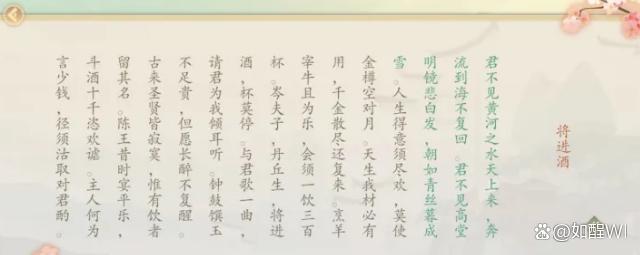 将进酒
君不见黄河之水天上来，奔
流到海不复回。君不见高堂
明镜悲白发，朝如青丝暮成
雪。人生得意须尽欢，莫使
金樽空对月。天生我材必有
用，千金散尽还复来。烹羊
宰牛且为乐，会须一饮三百
杯。岑夫子，丹丘生，将进
酒，杯莫停。与君歌一曲，
请君为我倾耳听。钟鼓馔玉
不足贵，但愿长醉不复醒。
古来圣贤皆寂寞，惟有饮者
留其名。陈王昔时宴平乐，
斗酒十千恣欢谑。主人何为
言少钱，径须沽取对君酌。
@如醒WI